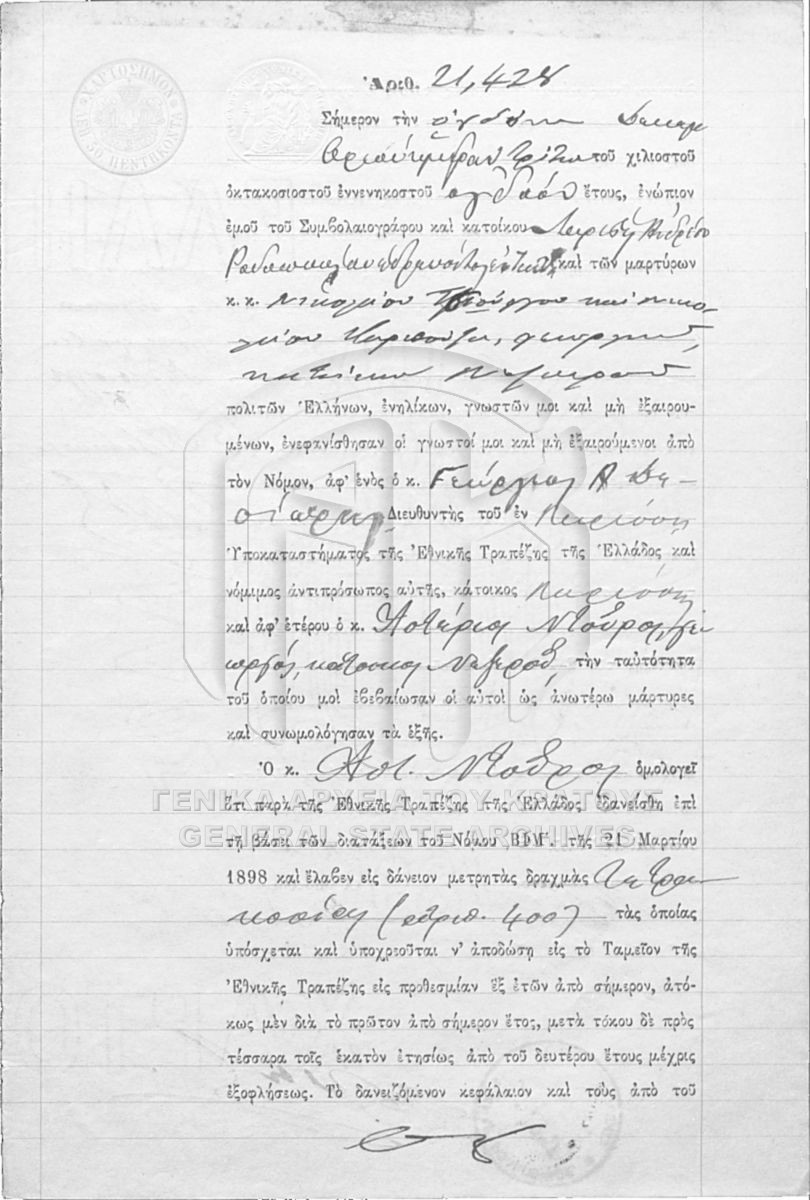 Ἀριθ. 21,428
Σήμερον τὴν ὀγδόην Δεκεμ
βρίου ἡμέραν Τρίτην τοῦ χιλιοστοῦ
ὀκτακοσιοστοῦ ἐννενηκοστοῦ ὀγδόου ἔτους, ἐνώπιον
ἐμοῦ τοῦ Συμβολαιογράφου καὶ κατοίκου Λαρίσης Ἀνδρέου
καὶ τῶν μαρτύρων
κ. κ. Νικολάου καὶ Νικο-
λάου γεωργῶν,
κατοίκων Νεζεροῦ
πολιτῶν Ἑλλήνων, ἐνηλίκων, γνωστῶν μοι καὶ μὴ ἐξαιρου-
μένων, ἐνεφανίσθησαν οἱ γνωστοί μοι καὶ μὴ ἐξαιρούμενοι ἀπὸ
τὸν Νόμον, ἀφ' ἑνὸς ὁ κ. Γεώργιος Α
Διευθυντὴς τοῦ ἐν Λαρίσῃ
Ὑποκαταστήματος τῆς Ἐθνικῆς Τραπέζης τῆς Ἑλλάδος καὶ
νόμιμος ἀντιπρόσωπος αὐτῆς, κάτοικος Λαρίσης
καὶ ἀφ' ἑτέρου ὁ κ. Ἀστέριος Ντοῦρος, γε
ωργός, κάτοικος Νεζεροῦ, τὴν ταὐτότητα
τοῦ ὁποίου μοὶ ἐβεβαίωσαν οἱ αὐτοὶ ὡς ἀνωτέρω μάρτυρες
καὶ συνωμολόγησαν τὰ ἑξῆς.
Ὁ κ. Ἀστ. Ντοῦρος ὁμολογεῖ
ΓΕΝΙΚΑ ΑΡΧΕΙΑ ΤΟΥ ΚΡΑΤΟΥΣ
ὅτι παρὰ τῆς Ἐθνικῆς Τραπέζης τῆς Ἑλλάδος ἐδανείσθη ἐπὶ
GENERAL STATE ARCHIVES
τῇ βάσει τῶν διατάξεων τοῦ Νόμου ΒΦΜ΄. τῆς 21 Μαρτίου
1898 καὶ ἔλαβεν εἰς δάνειον μετρητὰς δραχμὰς Τετρα
κοσίας (ἀριθ. 400) τὰς ὁποίας
ὑπόσχεται καὶ ὑποχρεοῦται ν' ἀποδώσῃ εἰς τὸ Ταμεῖον τῆς
Ἐθνικῆς Τραπέζης εἰς προθεσμίαν ἓξ ἐτῶν ἀπὸ σήμερον, ἀτό-
κως μὲν διὰ τὸ πρῶτον ἀπὸ σήμερον ἔτος, μετὰ τόκου δὲ πρὸς
τέσσαρα τοῖς ἑκατὸν ἐτησίως ἀπὸ τοῦ δευτέρου ἔτους μέχρις
ἐξοφλήσεως. Τὸ δανειζόμενον κεφάλαιον καὶ τοὺς ἀπὸ τοῦ